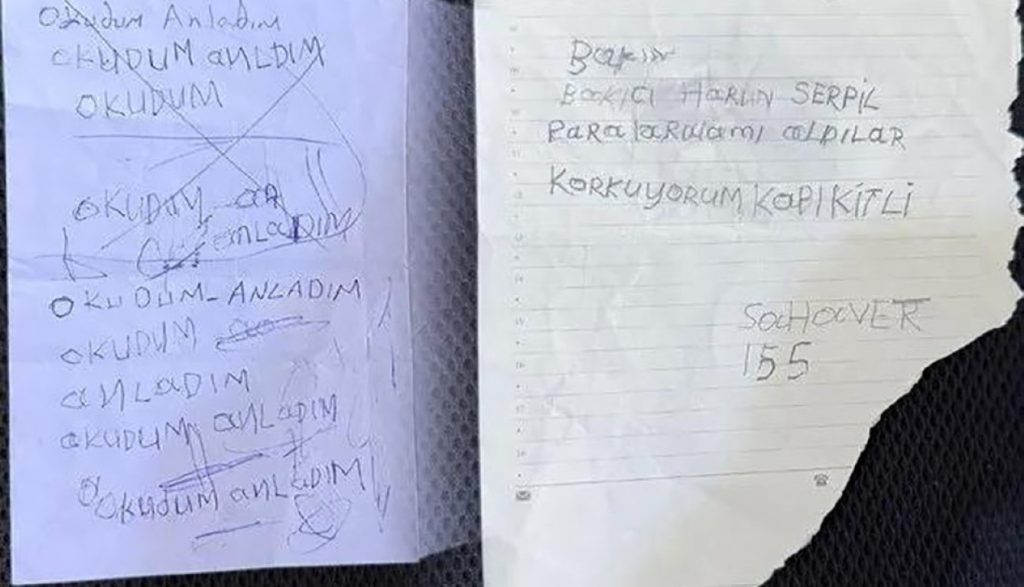 Okudum Anladım
OKUDUM aNLDIM
OKUDUM
OKUDUM
aNLADIM
OKUDUM-ANLADIM
OKUDUM
aNLaDIM
OKUDUM aNLaDIM
OKUduM aNLaDIM
BaKICI HaRUN SERPİL
PaRaLaRımamı aLDILaR
KORKUYORUM KaPI KİTLİ
155